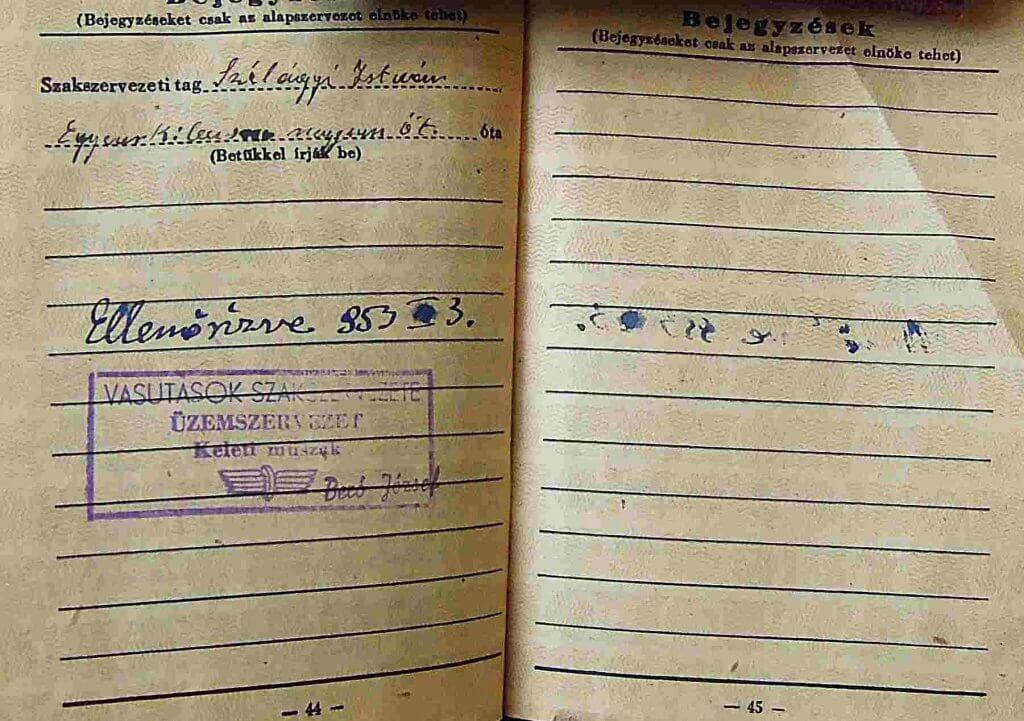 Bejegyzések
(Bejegyzéseket csak az alapszervezet elnöke tehet)
Szakszervezeti tag Szilágyi István
óta
(Betűkkel írják be)
Ellenőrizve 953 3.
VASUTASOK SZAKSZERVEZETE
ÜZEMSZERVEZET
Keleti műszak
Becő József
— 44 —
Bejegyzések
(Bejegyzéseket csak az alapszervezet elnöke tehet)
— 45 —